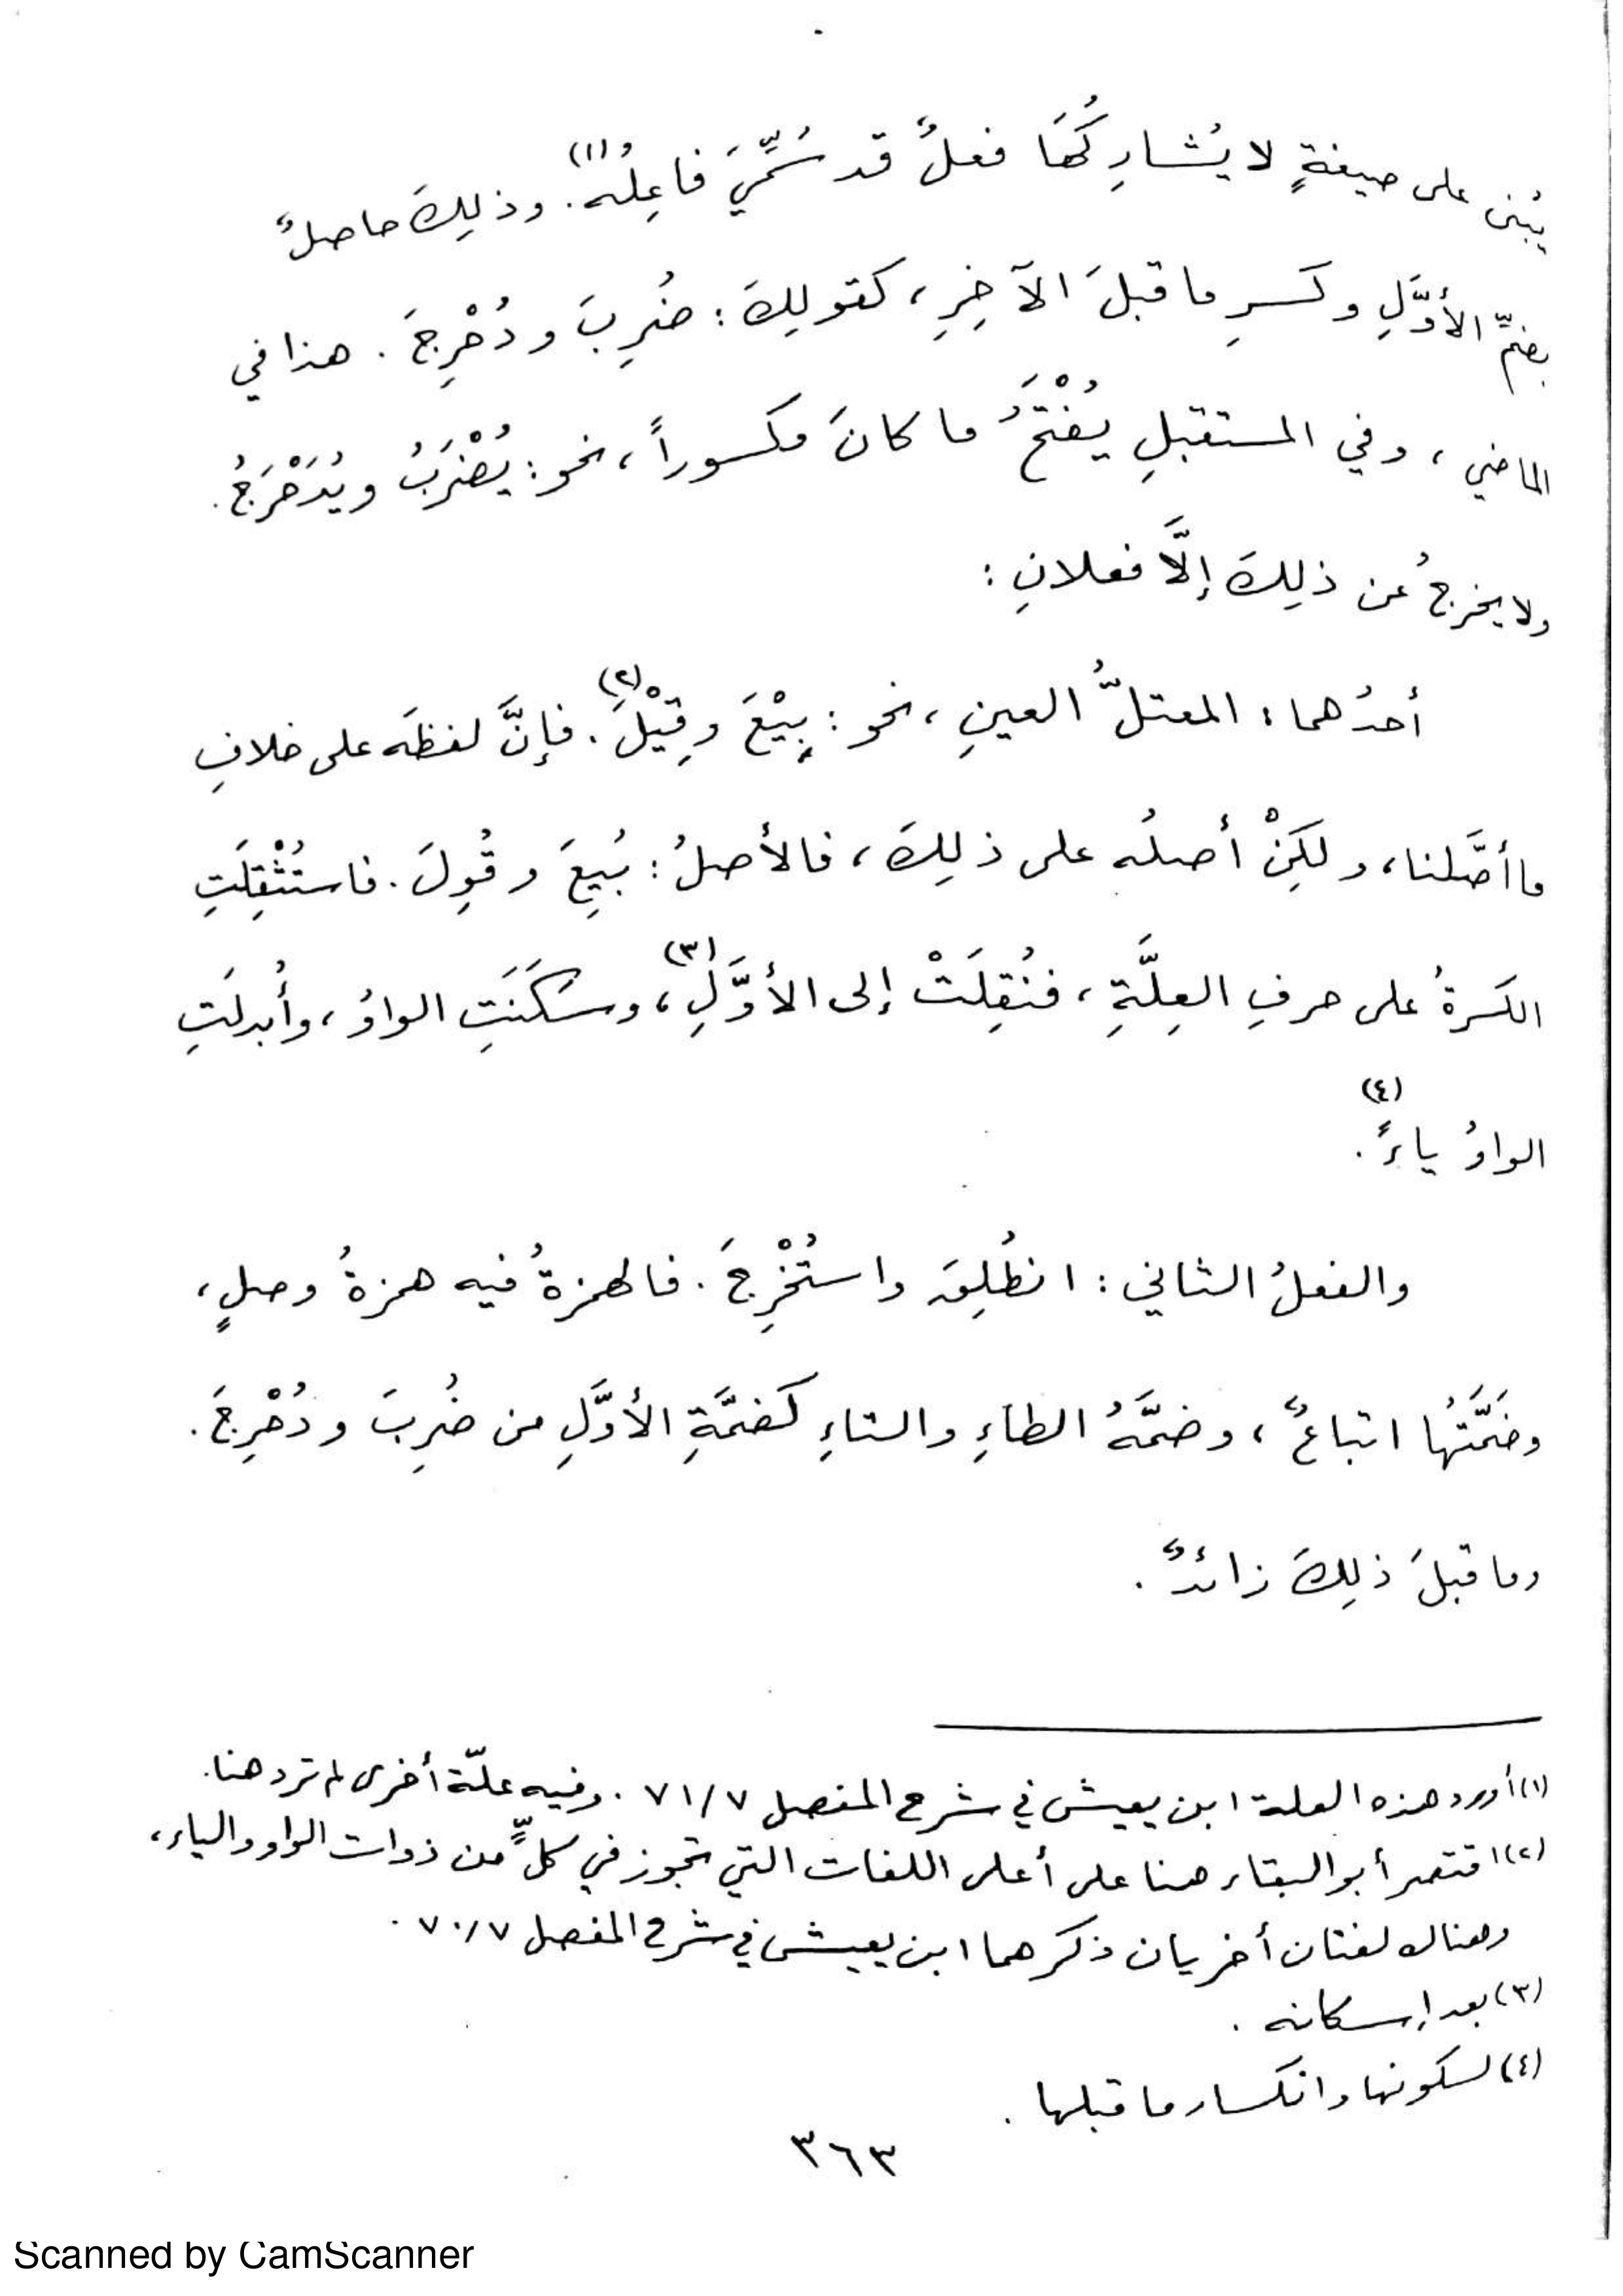 يُبنى على صيغةٍ لا يُشارِكُهَا فعلٌ قد سُمِّيَ فاعِلُه(١). وذلِكَ حاصلٌ
بضمِّ الأوَّلِ وكسرِ ما قبلَ الآخِرِ، كقولِكَ: ضُرِبَ ودُحْرِجَ. هذا في
الماضي، وفي المستقبلِ يُفْتَحُ ما كانَ مكسوراً، نحو: يُضْرَبُ ويُدَحْرَجُ.
ولا يخرجُ عن ذلِكَ إلَّا فعلانِ:
أحدُهما: المعتلُّ العينِ، نحو: بِيْعَ وقِيْلَ(٢). فإنَّ لفظَه على خلافِ
ما أصَّلنا، ولكِنْ أصلُه على ذلِكَ، فالأصلُ: بُيِعَ وقُوِلَ. فاستُثْقِلَتِ
الكسرةُ على حرفِ العِلَّةِ، فنُقِلَتْ إلى الأوَّلِ(٣)، وسَكَنَتِ الواوُ، وأُبدلَتِ
الواوُ ياءً(٤).
والفعلُ الثاني: انطُلِقَ واستُخْرِجَ. فالهمزةُ فيه همزةُ وصلٍ،
وضَمَّتُها اتباعٌ، وضمَّةُ الطاءِ والتاءِ كَضمَّةِ الأوَّلِ من ضُرِبَ ودُحْرِجَ.
وما قبلَ ذلِكَ زائدٌ.
(١) أورد هذه العلة ابن يعيش في شرح المفصل ٧/٧١. وفيه علّة أخرى لم ترد هنا.
(٢) اقتصر أبو البقاء هنا على أعلى اللغات التي تجوز في كلٍّ من ذوات الواو والياء،
وهناك لغتان أخريان ذكرهما ابن يعيش في شرح المفصل ٧/٧٠.
(٣) بعد إسكانه.
(٤) لسكونها وانكسار ما قبلها.
٣٦٣
Scanned by CamScanner